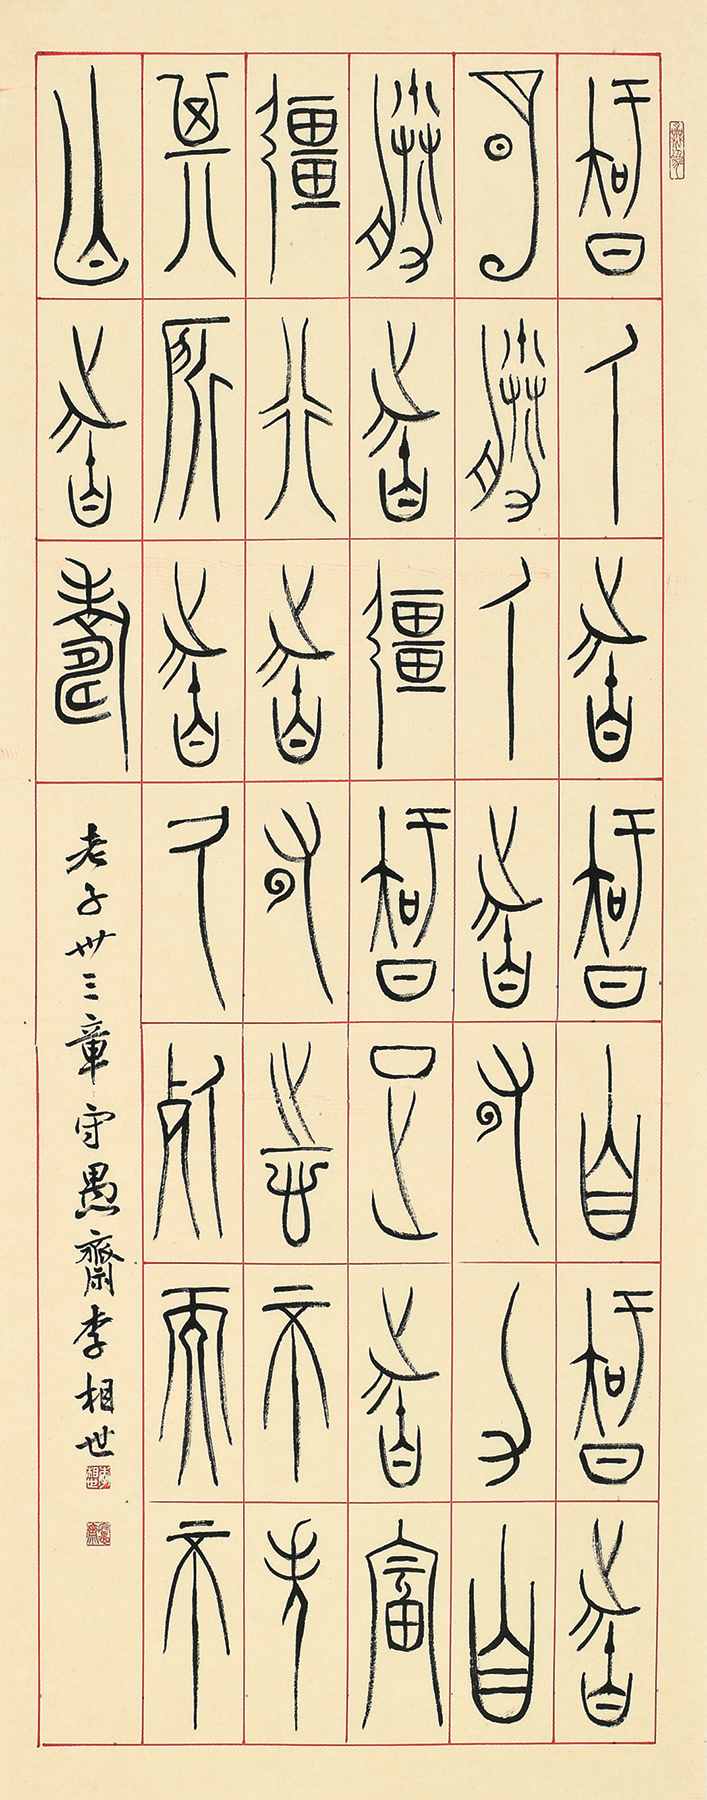 智人者智自智者
明勝人者有力自
勝者彊智足者富
彊行者有志不失
其所者久死而不
亡者壽
老子卅三章守愚齋李相世